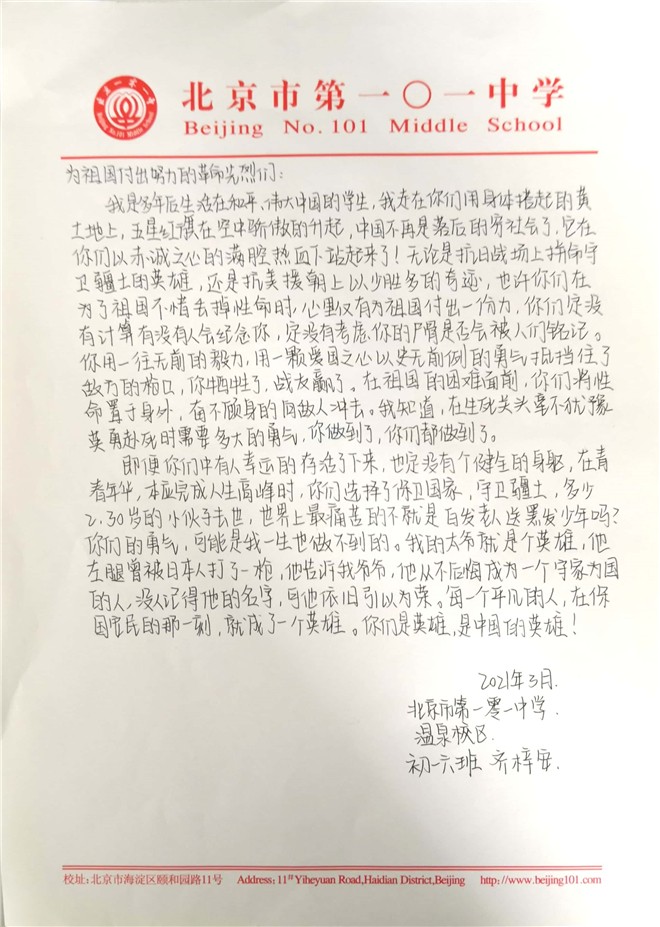 北京一零一中
Beijing No.101 Middle School
北京市第一〇一中学
Beijing No. 101 Middle School
为祖国付出努力的革命先烈们：
我是多年后生活在和平、伟大中国的学生，我走在你们用身体搭起的黄
土地上，五星红旗在空中骄傲的升起，中国不再是落后的穷社会了，它在
你们以赤诚之心的满腔热血下站起来了！无论是抗日战场上拼命守
卫疆土的英雄，还是抗美援朝上以少胜多的奇迹，也许你们在
为了祖国不惜丢掉性命时，心里仅有为祖国付出一份力，你们定没
有计算有没有人会纪念你，定没有考虑你的尸骨是否会被人们铭记。
你用一往无前的毅力，用一颗爱国之心以史无前例的勇气抵挡住了
敌方的枪口，你牺牲了，战友赢了。在祖国的困难面前，你们将性
命置于身外，奋不顾身的向敌人冲去。我知道，在生死关头毫不犹豫
英勇赴死时需要多大的勇气，你做到了，你们都做到了。
即便你们中有人幸运的存活了下来，也定没有个健全的身躯，在青
春年华，本应完成人生高峰时，你们选择了保卫国家，守卫疆土，多少
2、30岁的小伙子去世，世界上最痛苦的不就是白发老人送黑发少年吗？
你们的勇气，可能是我一生也做不到的。我的太爷就是个英雄，他
左腿曾被日本人打了一枪，他告诉我爷爷，他从不后悔成为一个守家为国
的人，没人记得他的名字，可他依旧引以为荣。每一个平凡的人，在保
国定民的那一刻，就成了一个英雄。你们是英雄，是中国的英雄！
2021年3月.
北京市第一零一中学.
温泉校区.
初一六班 齐梓安.
校址：北京市海淀区颐和园路11号 Address：11# Yiheyuan Road,Haidian District,Beijing http://www.beijing101.com